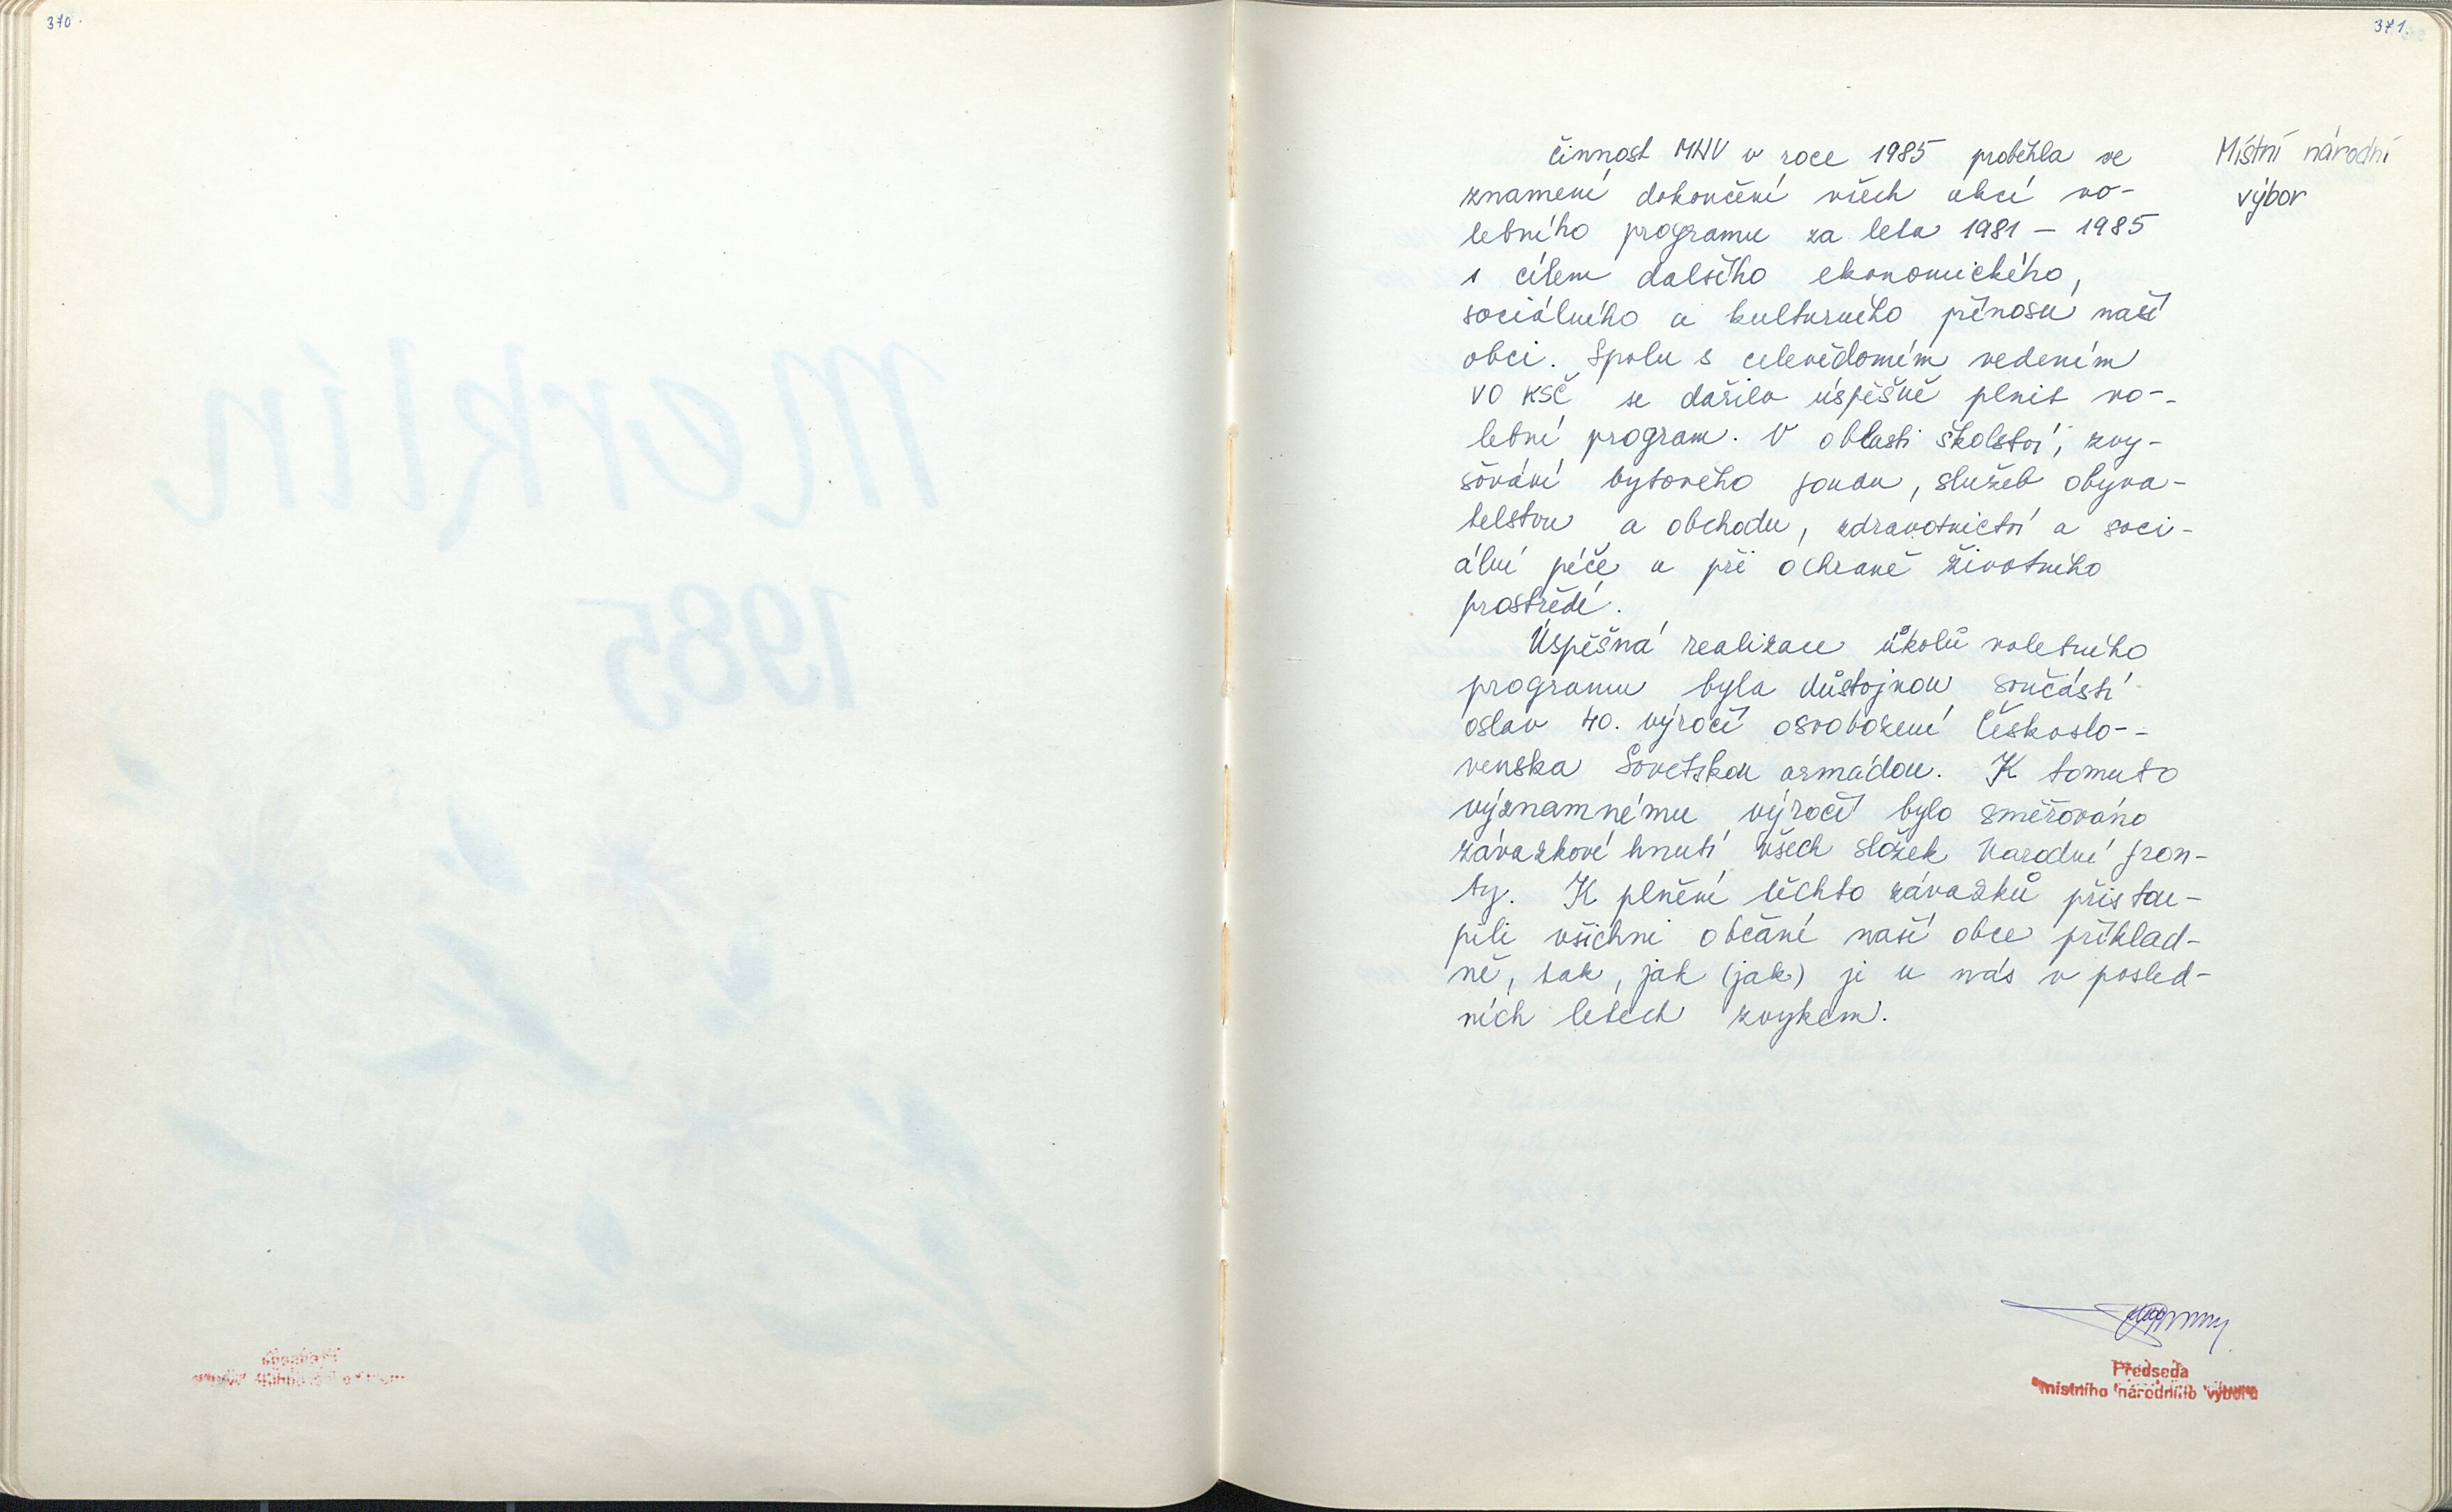 370.
Merklín
1985
371.
Místní národní
výbor
činnost MNV v roce 1985 proběhla ve
znamení dokončení všech akcí vo-
lebního programu za léta 1981 - 1985
s cílem dalšího ekonomického,
sociálního a kulturního přínosu naší
obci. Spolu s celevědomím vedením
VO KSČ se dařilo úspěšně plnit vo-
lební program. V oblasti školství, zvy-
šování bytového fondu, služeb obyva-
telstvu a obchodu, zdravotnictví a soci-
ální péče a při ochraně životního
prostředí.
Úspěšná realizace úkolů volebního
programu byla důstojnou součástí
oslav 40. výročí osvobození Českoslo-
venska Sovětskou armádou. K tomuto
významnému výročí bylo směřováno
závazkové hnutí všech složek Národní fron-
ty. K plnění těchto závazků přistou-
pili všichni občané naší obce příklad-
ně, tak, jak (jak) je u nás v posled-
ních letech zvykem.
Předseda
místního národního výboru